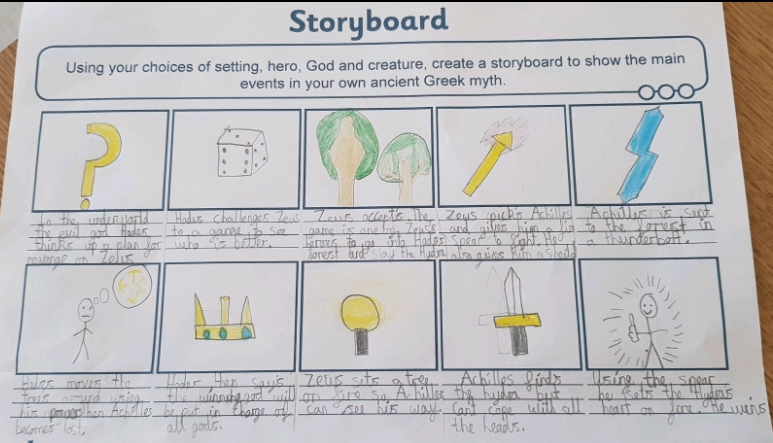 Storyboard
Using your choices of setting, hero, God and creature, create a storyboard to show the main
events in your own ancient Greek myth.
In the underworld
the evil god Hades
thinks up a plan for
revenge on Zeus
Hades challenges Zeus
to a game to see
who is better.
Zeus accepts. The
game is one of Zeus's
to go into Hades
forest and slay the Hydra
Zeus picks Achilles
and gives him a fire
spear to fight. He
also gives him a shield
Achilles is sent
to the forest in
a thunderbolt.
Hades moves the
trees around using
his powers then Achilles
becomes lost.
Hades then says
the winning god will
be put in charge of
all gods.
Zeus sets a tree
on fire so Achilles
can see his way.
Achilles finds
the hydra but
cant cope with all
the heads.
Using the spear
he sets the Hydras
heart on fire. He wins